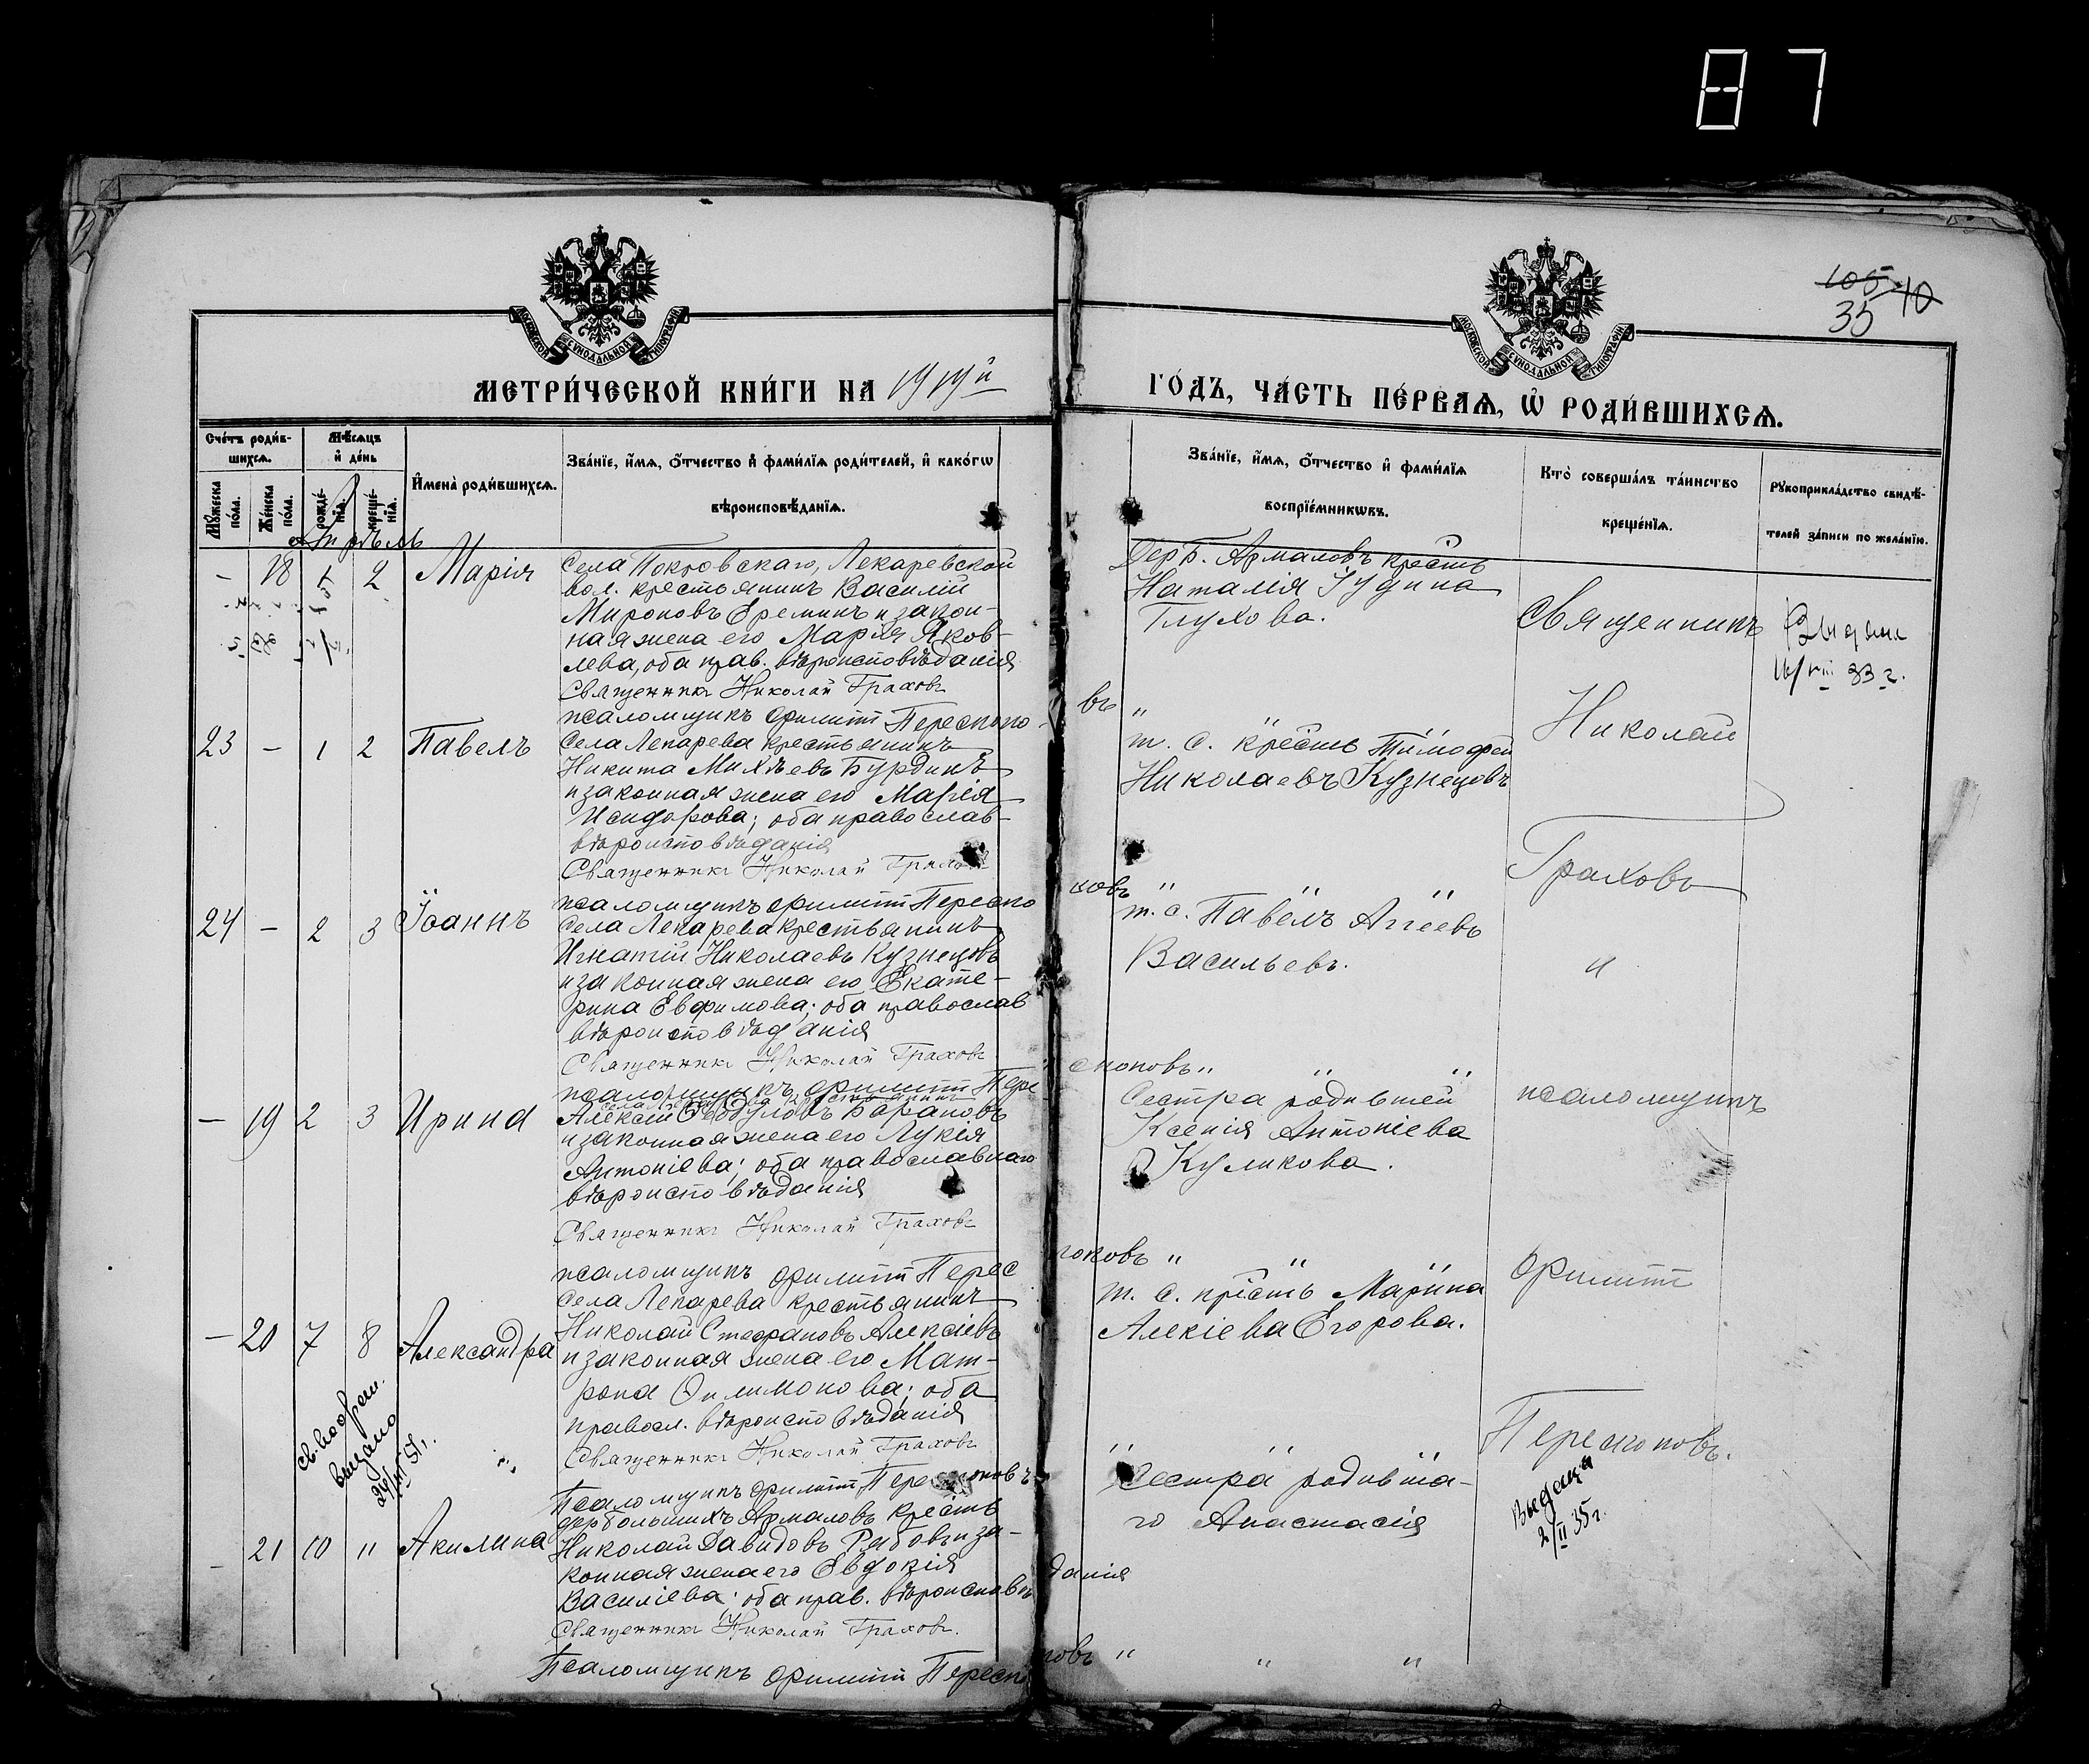 87
105 40
35
МОСКОВСКОЙ СУНОДАЛЬНОЙ ТИПОГРАФІИ
МОСКОВСКОЙ СУНОДАЛЬНОЙ ТИПОГРАФІИ
МЕТРИ́ЧЕСКОЙ КНИ́ГИ НА 1919й
ГО́ДЪ, ЧА́СТЬ ПЕ́РВАѦ, Ѡ҆ РОДИ́ВШИХСѦ.
Сче́тъ роди́в-
шихсѧ.
Мѣ́сѧцъ
и҆ де́нь
И҆мена̀ роди́вшихсѧ.
Зва́нїе, и҆́мѧ, ѻ҆́тчество и҆ фами́лїѧ роди́телей, и҆ како́гѡ
вѣроисповѣ́данїѧ.
Мꙋ́жеска
по́ла.
Же́нска
по́ла.
рожде́-
нїѧ.
креще́-
нїѧ.
Зва́нїе, и҆́мѧ, ѻ҆́тчество и҆ фами́лїѧ
воспрїе́мникѡвъ.
Кто̀ соверша́лъ та́инство
креще́нїѧ.
Рꙋкоприкла́дство свидѣ́-
телей за́писи по жела́нїю.
Апрѣль
- 18 1 2 Марія
Села Покровскаго, Лекаревской
вол. крестьянинъ Василій
Мироновъ Ереминъ и закон-
ная жена его Марія Яков-
лева, оба прав. вѣроисповѣданія
Священникъ Николай Граховъ
псаломщикъ Филиппъ Переспоно-
въ " " "
Дер. Б. Армаловъ крестьян
Наталія Іудина
Глухова.
Священникъ
Выдана
16/VIII 33 г.
23 - 1 2 Павелъ
Села Лекарева крестьянинъ
Никита Михѣевъ Бурдинъ
и законная жена его Марія
Исидорова; оба православ-
вѣроисповѣданія
Священникъ Николай Граховъ
псаломщикъ Филиппъ Переспо
новъ " " "
т. с. крестьян Тимофей
Николаевъ Кузнецовъ
Николай
Граховъ
24 - 2 3 Іоаннъ
Села Лекарева крестьянинъ
Игнатій Николаевъ Кузнецовъ
и законная жена его Екате-
рина Евфимова; оба православ
вѣроисповѣданія
Священникъ Николай Граховъ
псаломщикъ Филиппъ Пере
споновъ " " "
т. с. Павелъ Агеевъ
Васильевъ.
и
- 19 2 3 Ирина
Села Лекарева крестьянинъ
Алексій Ѳеодуловъ Барановъ
и законная жена его Лукія
Антоніева; оба православнаго
вѣроисповѣданія
Священникъ Николай Граховъ
псаломщикъ Филиппъ Перес
поновъ " " "
Сестра родившей
Ксенія Антоніева
Куликова.
псаломщикъ
Филиппъ
- 20 7 8 Александра
Села Лекарева крестьянинъ
Николай Стефановъ Алексіевъ
и законная жена его Мат-
рона Филимонова; оба
правосл. вѣроисповѣданія
Священникъ Николай Граховъ
Псаломщикъ Филиппъ Переспоновъ
" " "
т. с. крестьян Марина
Алекіева Егорова.
Переспоновъ.
выдано
24/III 51 г.
- 21 10 " Акилина
дер. Большихъ Армаловъ крестьян
Николай Давидовъ Рябовъ и за-
конная жена его Евдокія
Василіева; оба прав. вѣроисповѣ
данія
Священникъ Николай Граховъ.
Псаломщикъ Филиппъ Переспо
новъ " " "
Сестра родивша-
го Анастасія
Выдана
2/II 35 г.